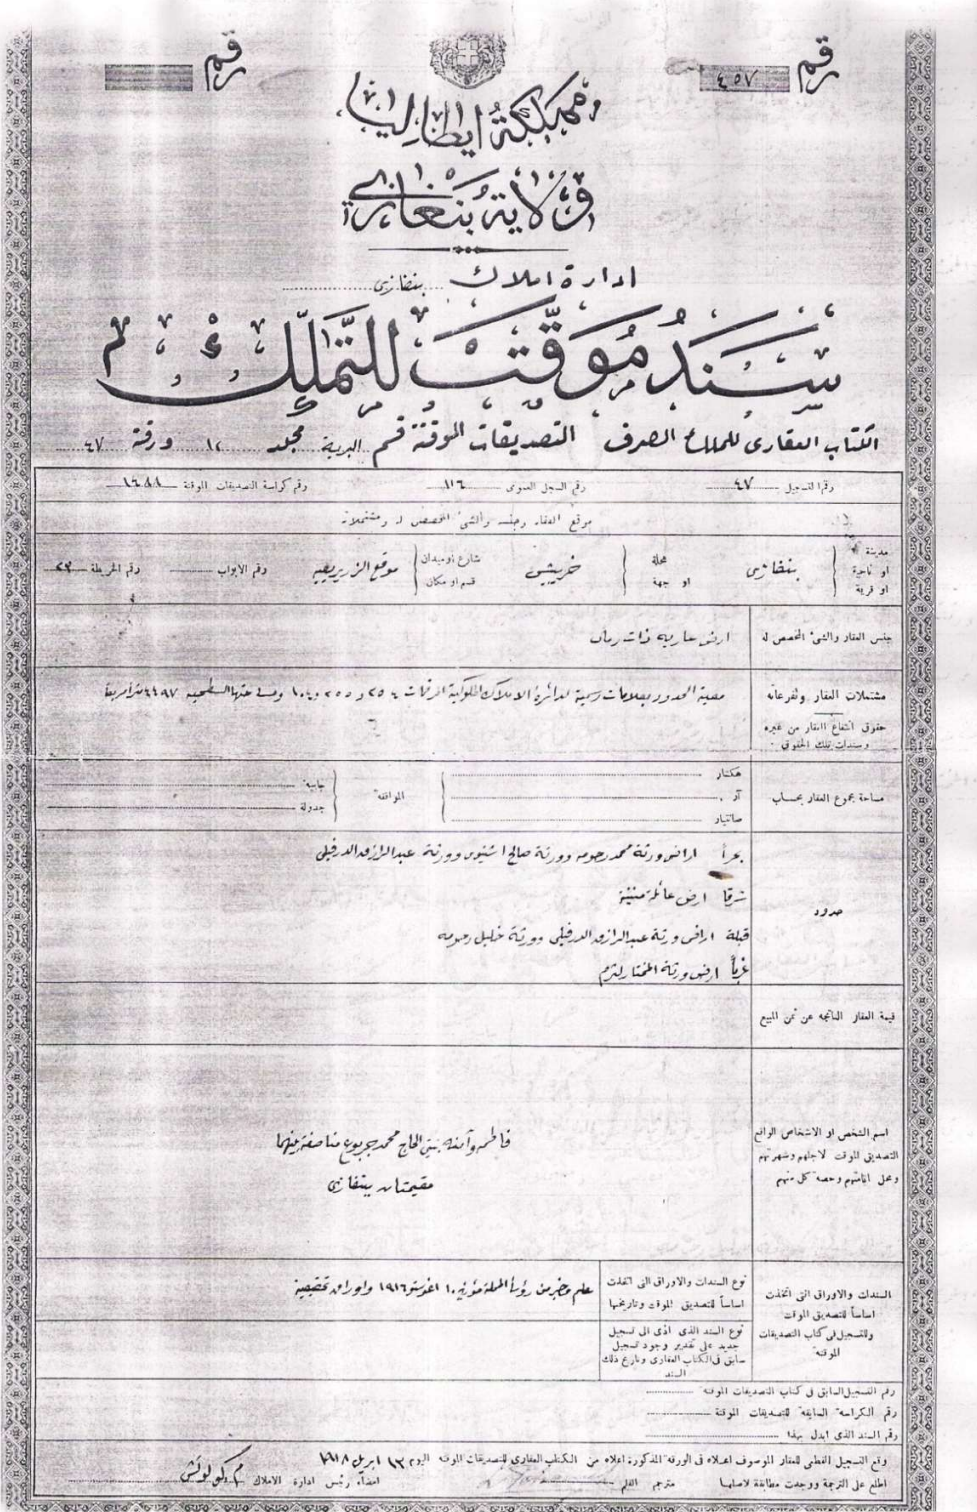 رقم ٤٥٧
رقم
مملكة ايطاليا
ولاية بنغازي
ادارة املاك بنغازي
سند موقت للتملك
الكتاب العقاري للملك الصرف التصديقات الموقتة قسم البرية مجلد ١٢ ورقة ٤٧
رقم التسجيل ٤٧ رقم السجل العمومي ١١٦ رقم كراسة التصديقات الموقتة ١٦٨٨
موقع العقار وجنسه والشيء المخصص له ومشتملاته
مدينة او ناحية او قرية بنغازي محلة او جهة خريبش شارع او ميدان قسم او مكان موقع الزريريعيه رقم الابواب رقم الخريطة ٢٣
جنس العقار والشيء المخصص له ارض عارية ذات رمال
مشتملات العقار وتفرعاته معينة الحدود بعلامات رسمية لدائرة الاملاك
حقوق انتفاع العقار من غيره وسندات تلك الحقوق
مساحة مجموع العقار بحساب هكتار آر صانتيار الموافقة جابية جدولة
حدود
بحراً اراضي ورثة محمد رحومه وورثة صالح اشتيوي وورثة عبد الرازق الدرفيلي
شرقا ارض عائلة منينة
قبلة اراضي ورثة عبد الرازق الدرفيلي وورثة خليل رحومه
غرباً ارض ورثة المختار
قيمة العقار الناتجه عن ثمن المبيع
اسم الشخص او الاشخاص الواقع التصديق الموقت لاجلهم وشهرتهم ومحل اقامتهم وحصة كل منهم
فاطمه وآمنه بنتي الحاج محمد جربوع مناصفة بينهما
مقيمتان ببنغازي
السندات والاوراق التي اتخذت اساساً للتصديق الموقت وللتسجيل في كتاب التصديقات الموقتة
نوع السندات والاوراق التي اتخذت اساساً للتصديق الموقت وتاريخها
علم وخبر من رؤسأ المحلة مؤرخ ١٠ اغوستو ١٩١٦ واوراق تحقيقية
نوع السند الذي ادى الى تسجيل جديد على تقدير وجود تسجيل سابق في الكتاب العقاري وتاريخ ذلك السند
رقم التسجيل السابق في كتاب التصديقات الموقتة
رقم الكراسة السابقة للتصديقات الموقتة
رقم السند الذي ابدل بهذا
وقع التسجيل القطعي للعقار الموصوف اعلاه في الورقة المذكورة اعلاه من الكتاب العقاري للتصديقات الموقتة اليوم ١٣ ابريل ١٩١٨
اطلع على الترجمة ووجدت مطابقة لاصلها مترجم القلم امضاء رئيس ادارة الاملاك